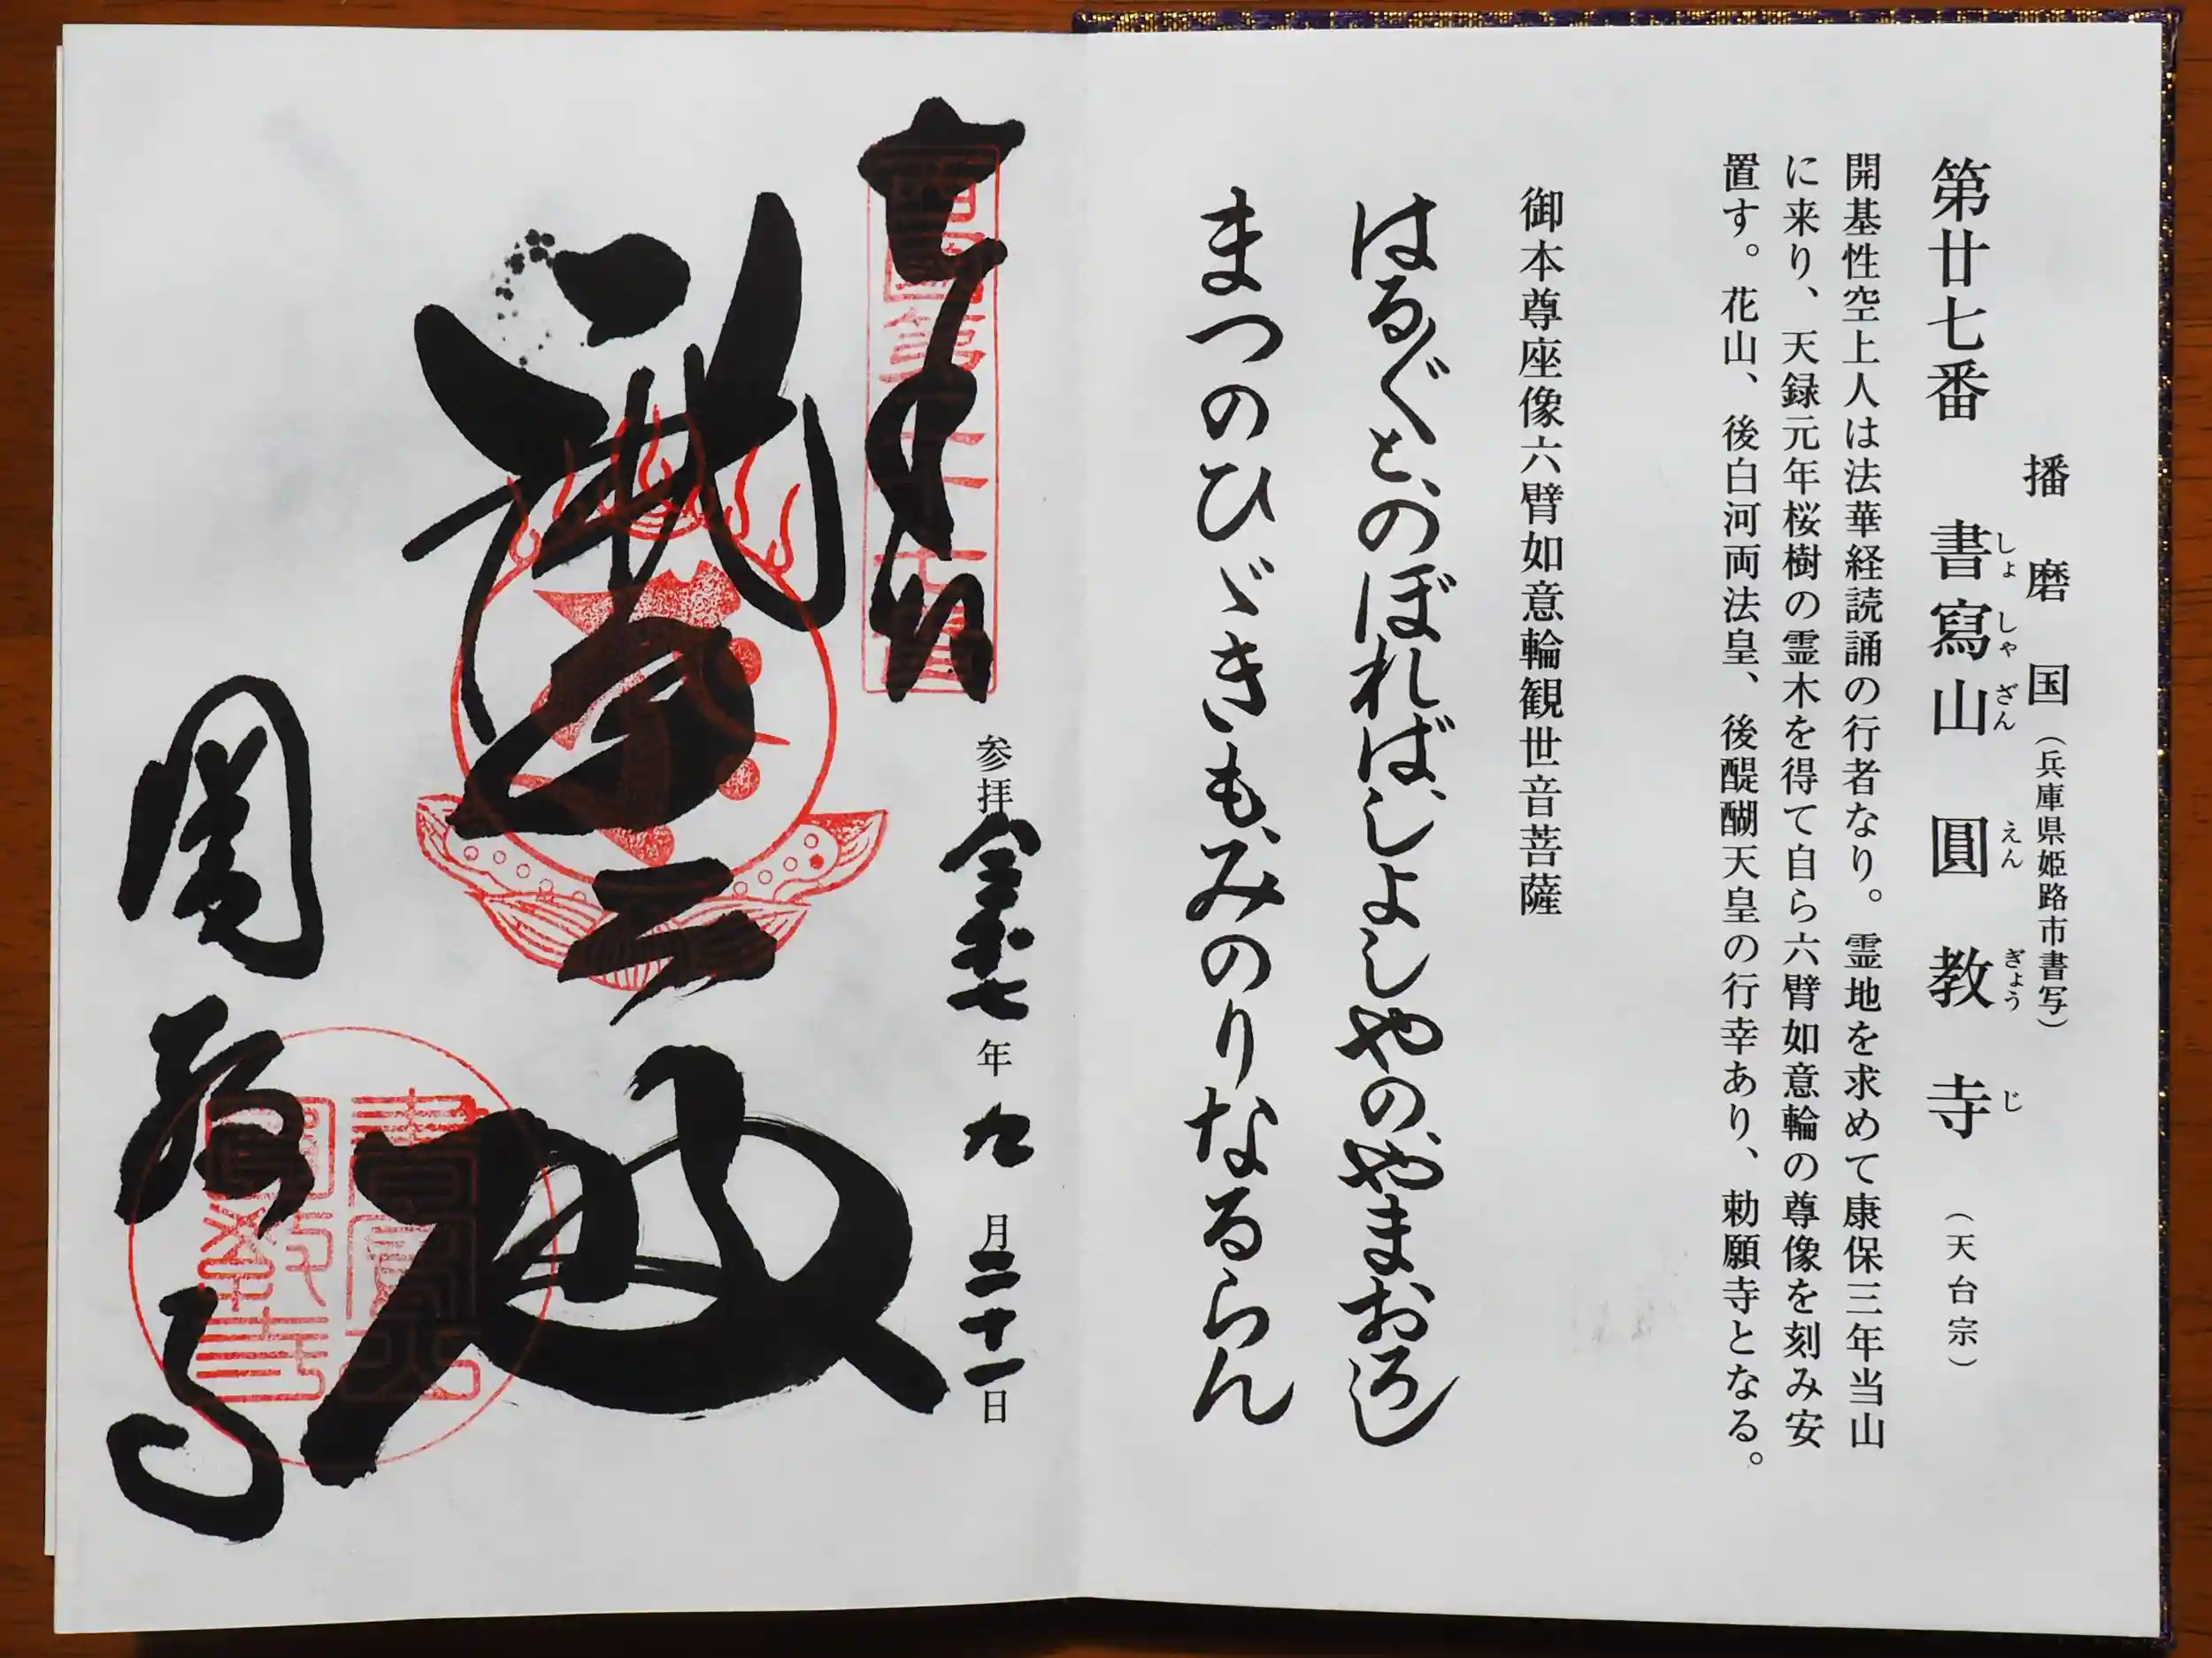 播磨国（兵庫県姫路市書写）
第廿七番　書寫山　圓教寺（天台宗）
しょしゃざん　えんぎょうじ
開基性空上人は法華経読誦の行者なり。霊地を求めて康保三年当山
に来り、天録元年桜樹の霊木を得て自ら六臂如意輪の尊像を刻み安
置す。花山、後白河両法皇、後醍醐天皇の行幸あり、勅願寺となる。
御本尊座像六臂如意輪観世音菩薩
はる〴〵と、のぼれば、しょしやの、やまおろし
まつのひゞきも、みのりなるらん
奉拝
西國第二十七番
参拝　令和七年九月二十一日
摩尼殿
圓教寺
書寫山圓教寺